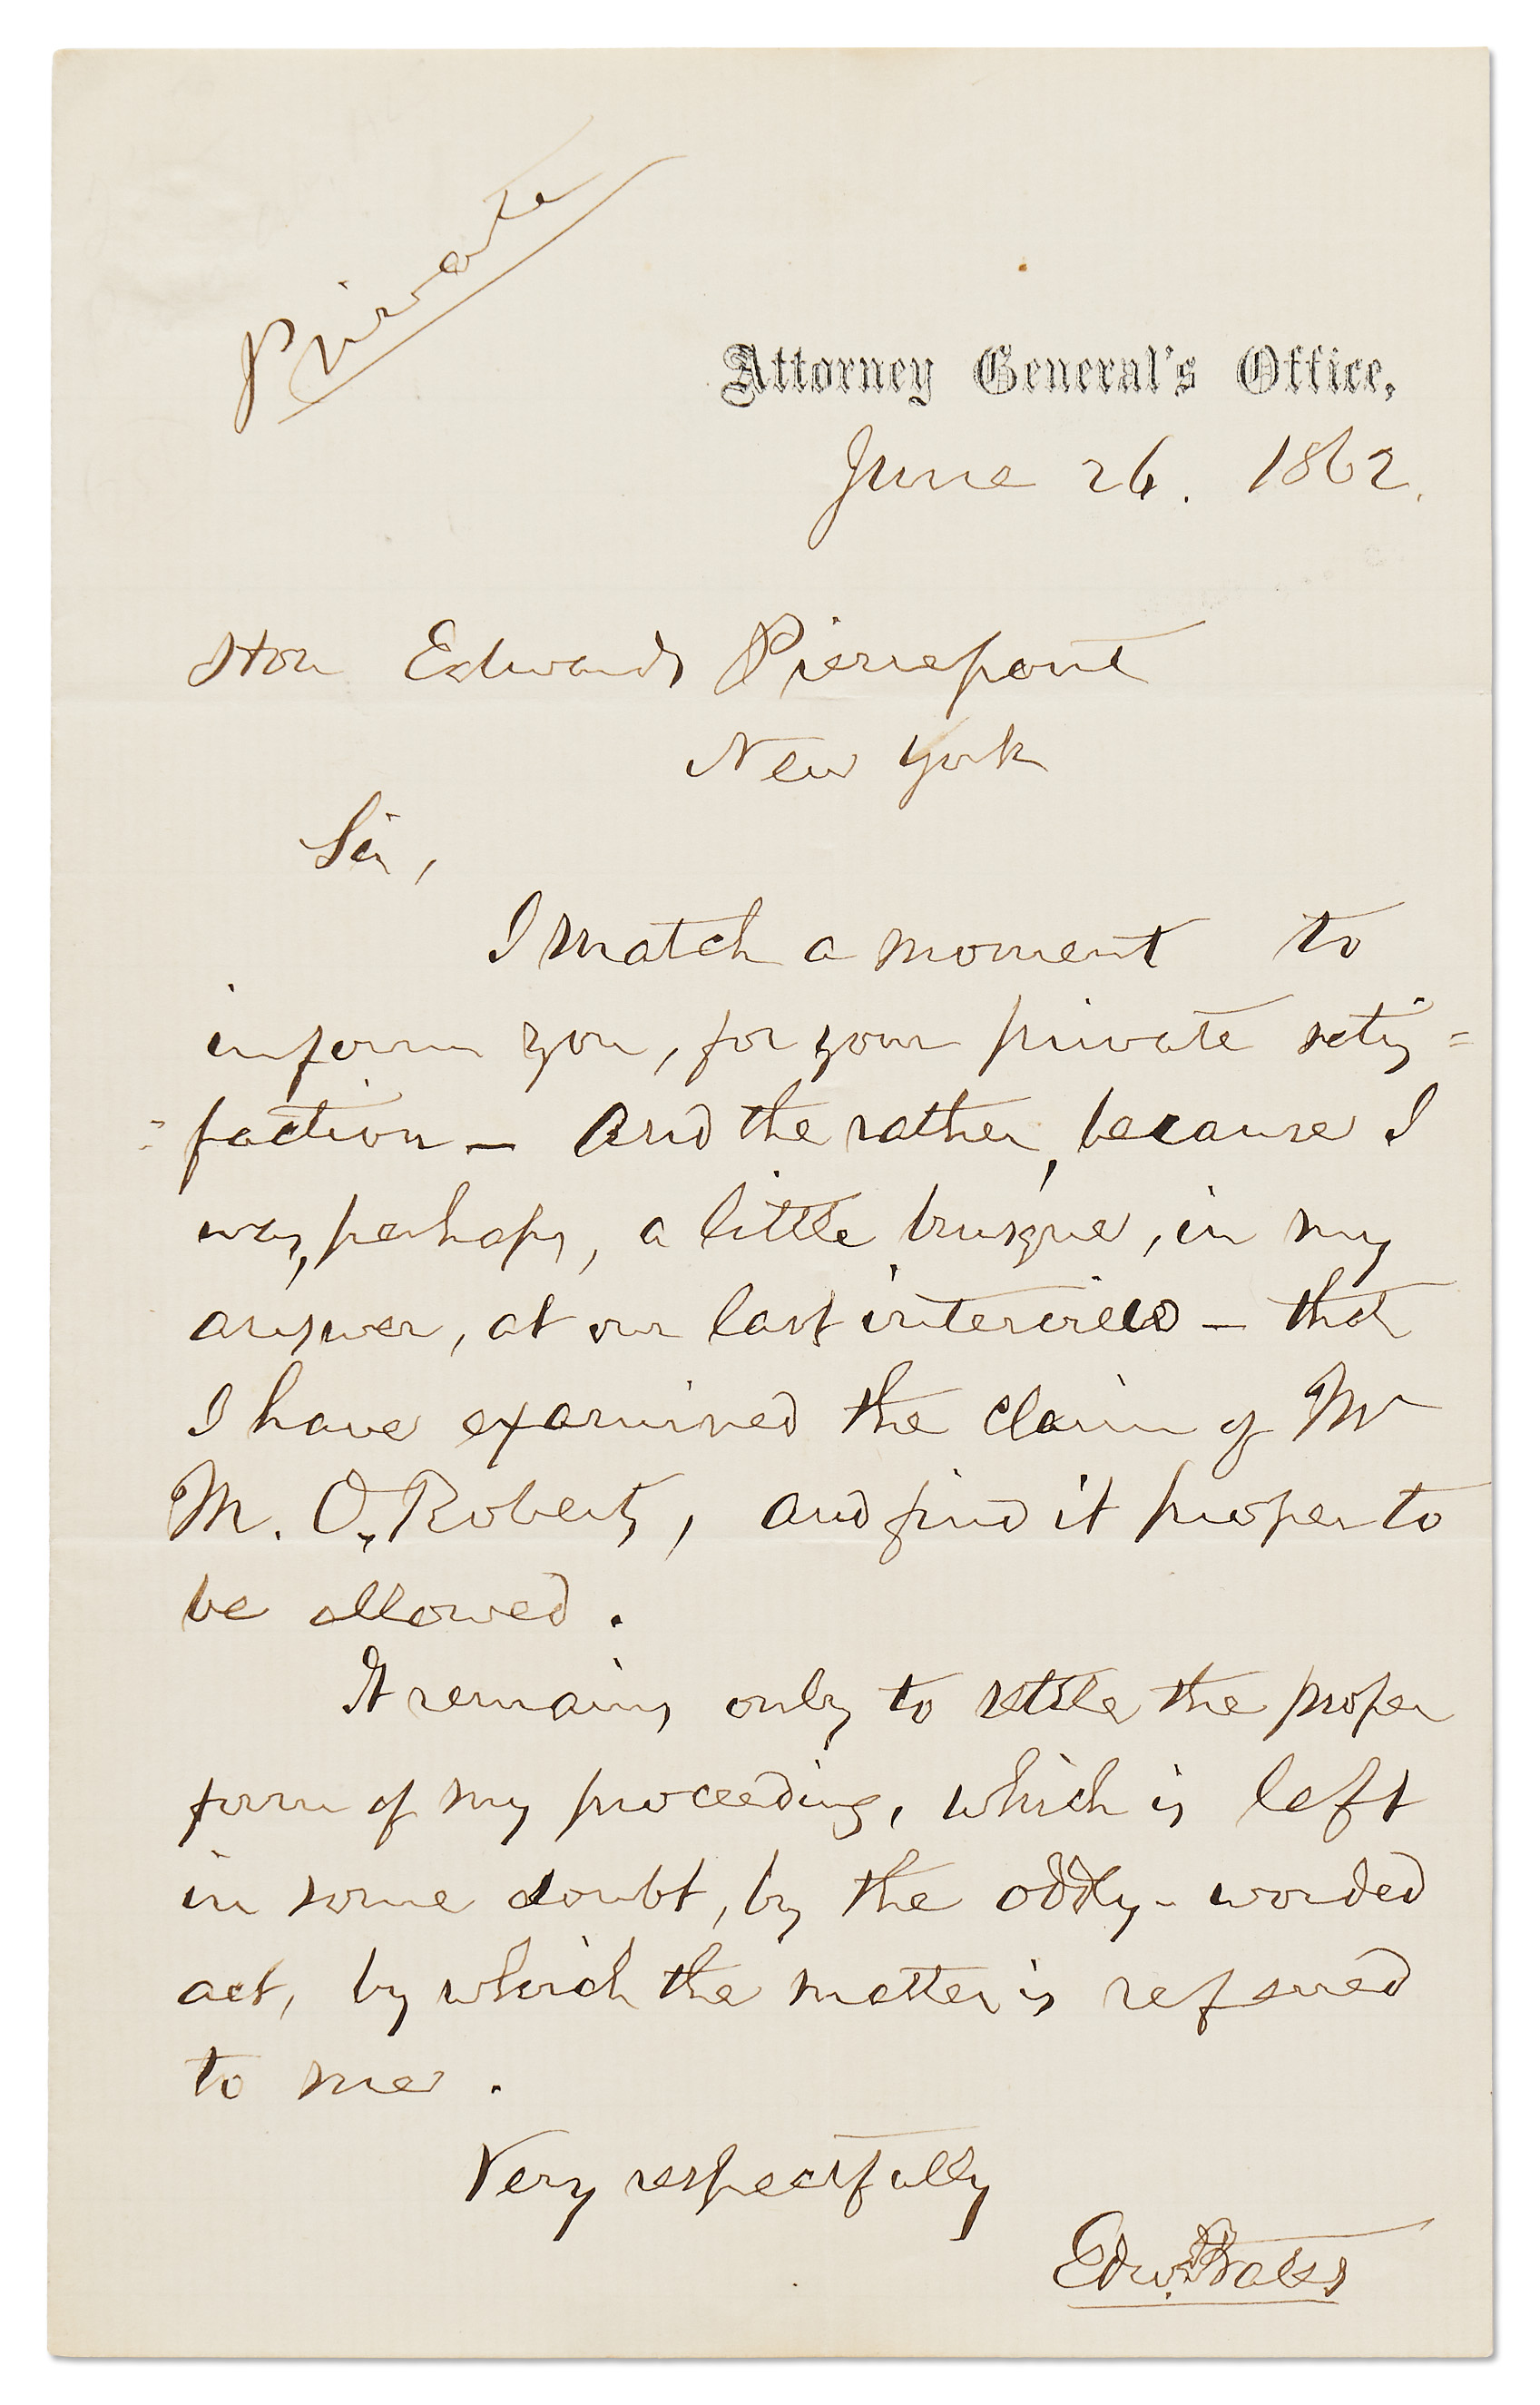 Private
Attorney General's Office,
June 26. 1862.
Hon Edwards Pierrepont
New York
Sir,
I snatch a moment to
inform you, for your private satis=
=faction — And the rather, because I
was, perhaps, a little brusque, in my
answer, at our last interview — that
I have examined the claim of Mr
M. O. Roberts, and find it proper to
be allowed.
It remains only to settle the proper
form of my proceeding, which is left
in some doubt, by the oddly-worded
act, by which the matter is referred
to me.
Very respectfully
Edw. Bates